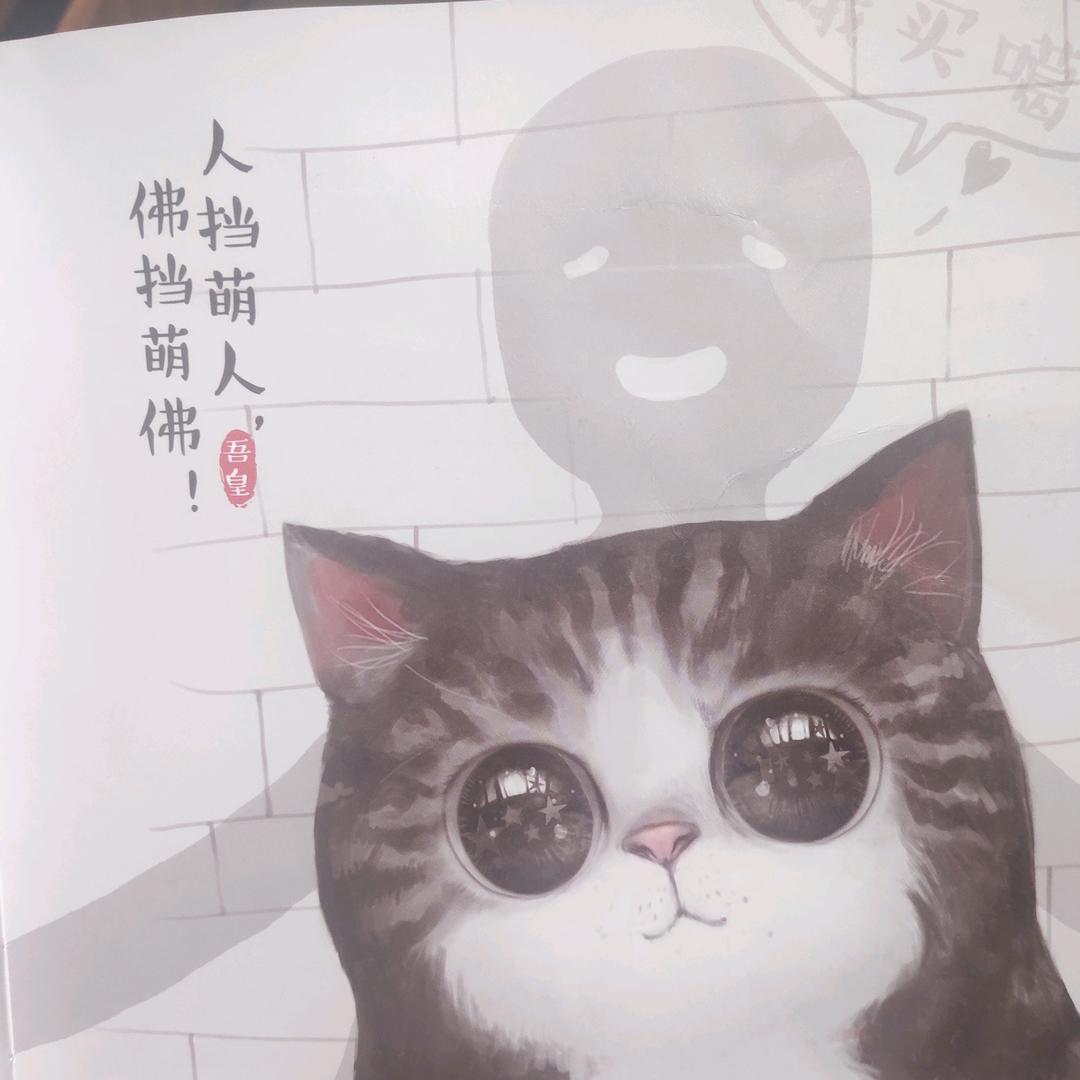 人挡萌人，
佛挡萌佛！
吾皇
哦买噶